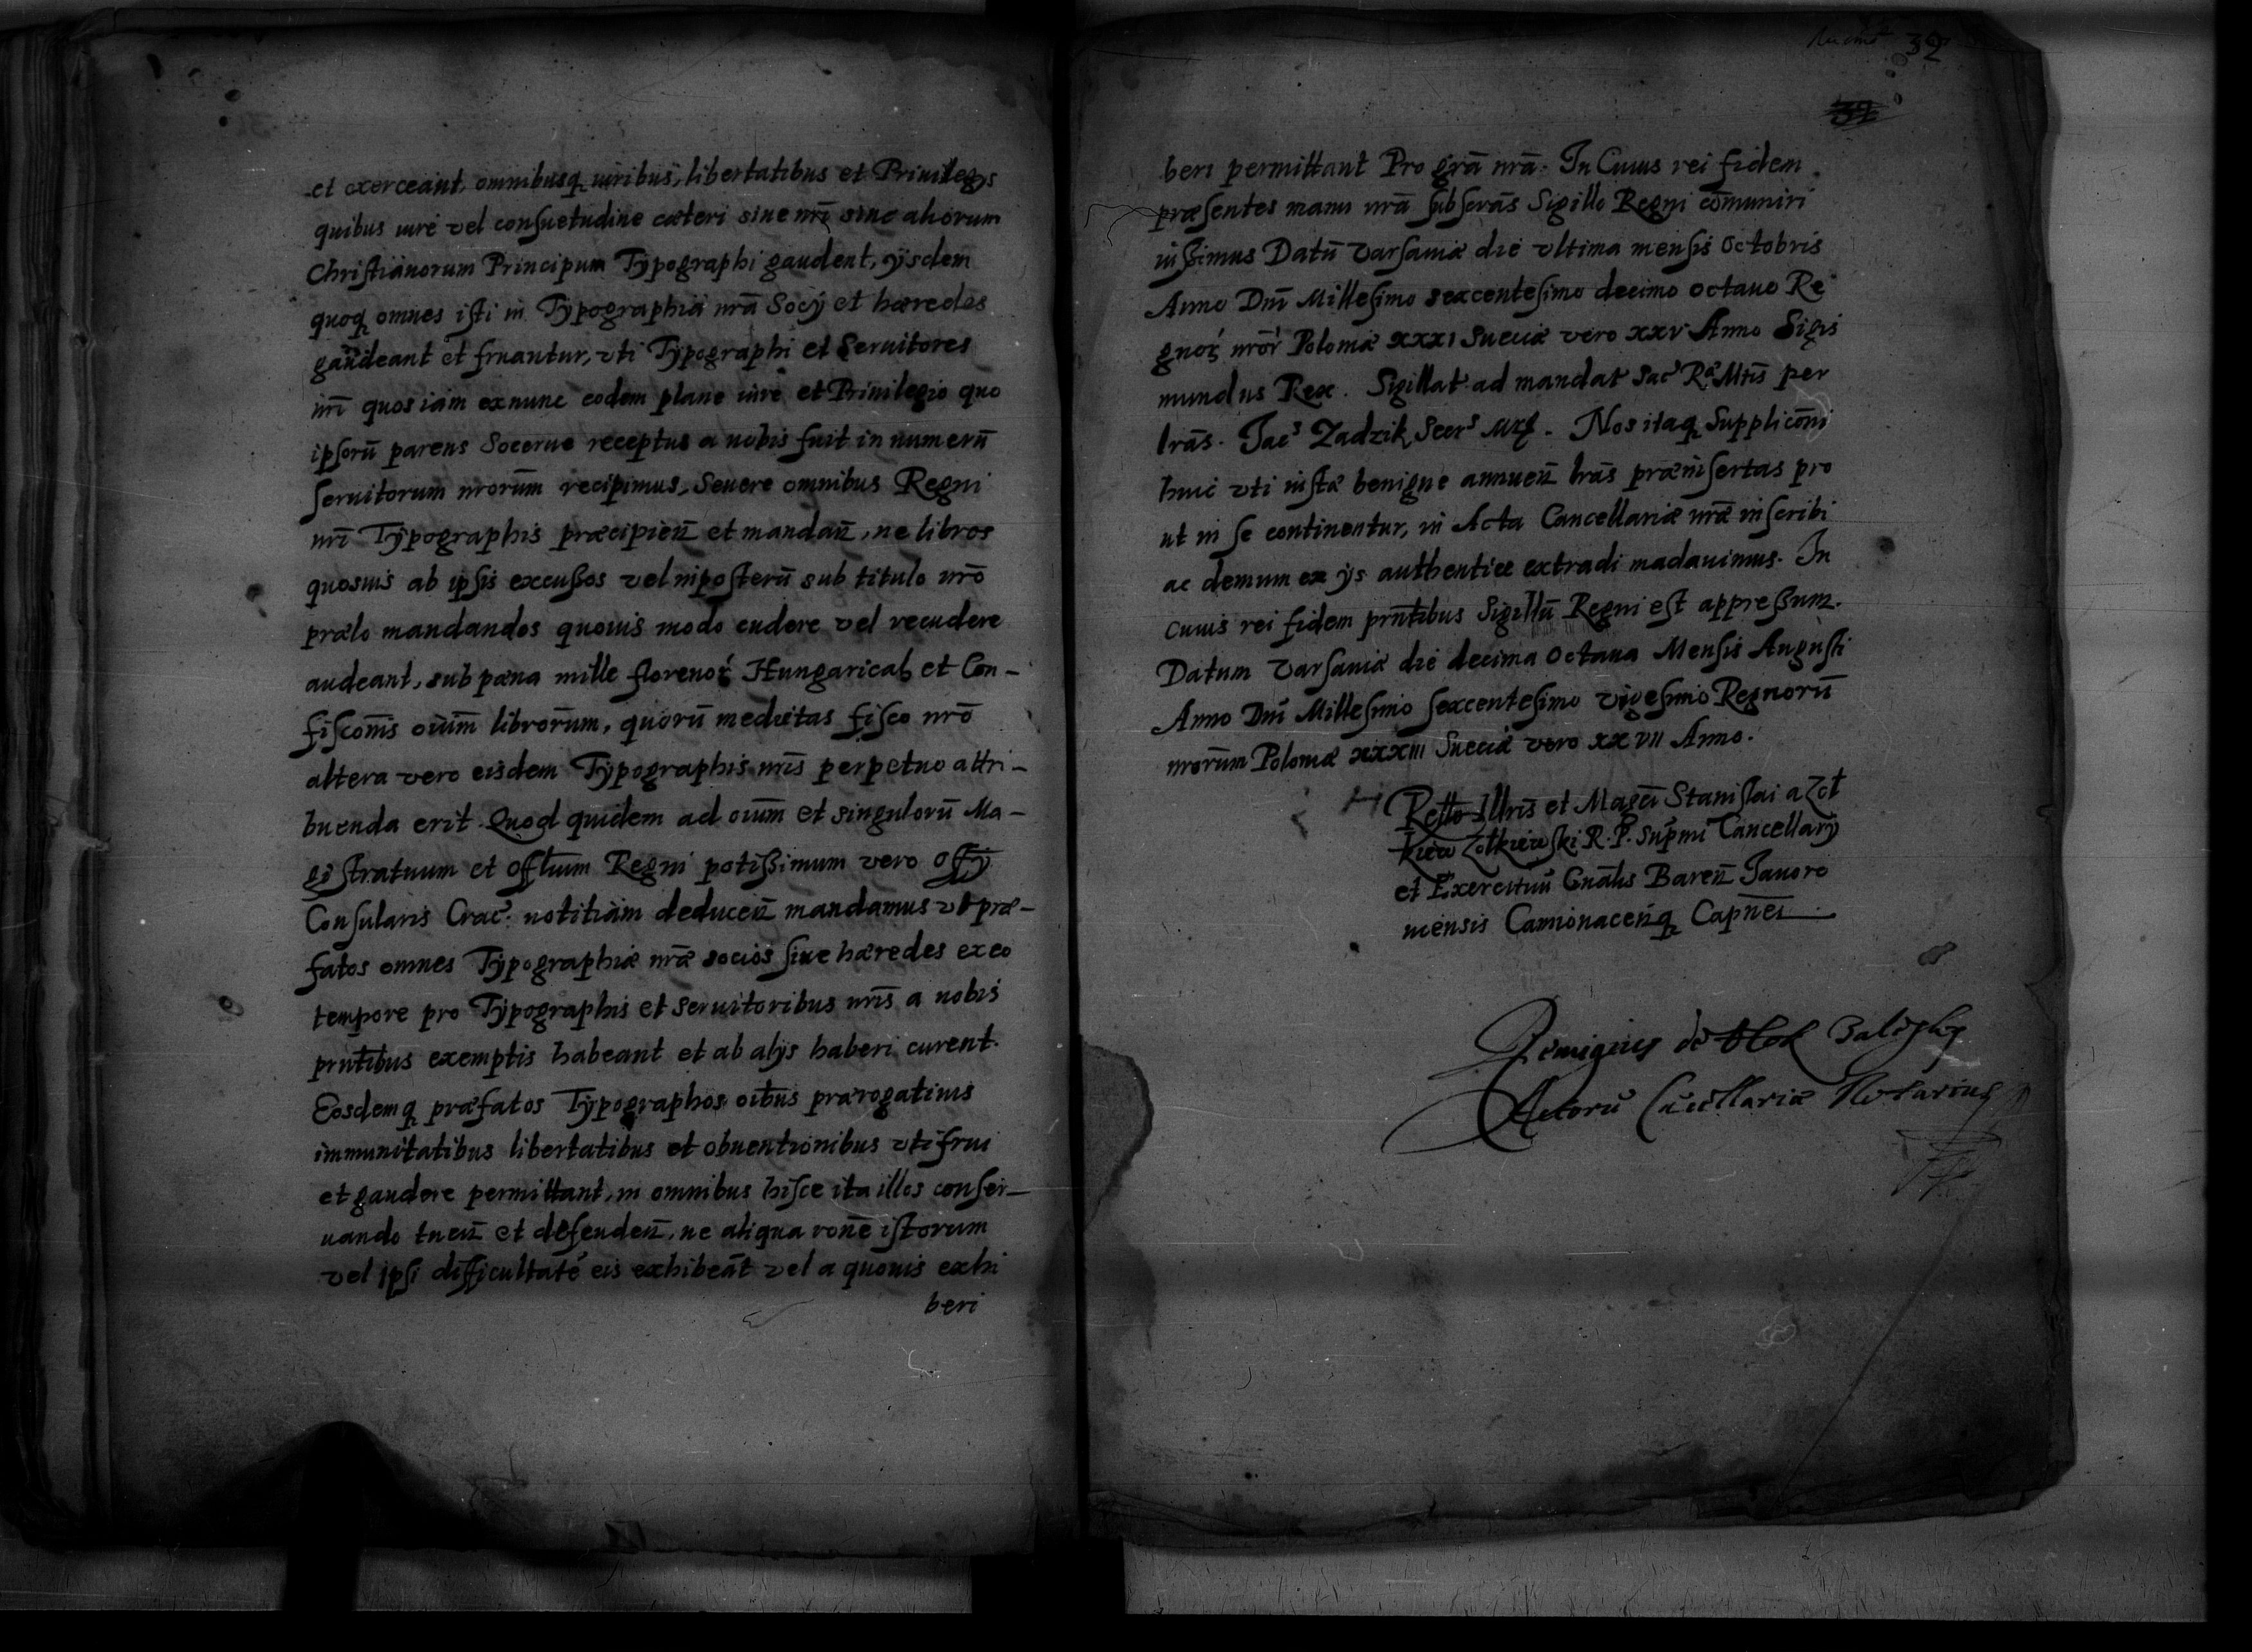 et exerceant, omnibusq iuribus, libertatibus et Priuilegys
quibus iure vel consuetudine cæteri siue nrī siue aliorum
Christianorum Principum Typographi gaudent, ysdem
quoq omnes isti in Typographia nrā Socy et hæredes
gaudeant et fruantur, vti Typographi et Seruitores
nrī quos iam exnunc eodem plane iure et Priuilegio quo
ipsorū parens Socerue receptus a nobis fuit in numerū
seruitorum nrorūm recipimus, Seuere omnibus Regni
nrī Typographis præcipien̄ et mandan̄, ne libros
quosuis ab ipsis excussos vel inposterū sub titulo nrō
prælo mandandos quouis modo cudere vel recudere
audeant, sub pæna mille florenor Hungarical et Con-
fisconīs oiūm librorum, quorū medietas fisco nrō
altera vero eisdem Typographis nrīs perpetuo attri-
buenda erit. Quod quidem ad oiūm et singulorū Ma-
gistratuum et Offtium Regni potissimum vero offy
Consularis Crac: notitiam deducen̄ mandamus vt præ-
fatos omnes Typographiæ nræ socios siue hæredes ex eo
tempore pro Typographis et seruitoribus nrīs a nobis
prntībus exemptis habeant et ab alys haberi curent.
Eosdemq præfatos Typographos oībus prærogatiuis
immunitatibus libertatibus et obuentionibus vti frui
et gaudere permittant, in omnibus hisce ita illos conser-
uando tuen̄ et defenden̄, ne aliqua ronē istorum
vel ipsi difficultatē eis exhibeāt vel a quouis exhi
beri
32
beri permittant Pro grā nrā. In Cuius rei fidem
præsentes manu nrā subscrās Sigillo Regni cōmuniri
iussimus Datū Varsauiæ die vltima mensis Octobris
Anno Dnī Millesimo sexcentesimo decimo octauo Re
gnor nrōr Poloniæ xxxi Sueciæ vero xxv Anno Sigis
mundus Rex. Sigillat ad mandat Sac Rᵃ Mtīs per
lrās. Jacˢ Zadzik Secrˢ Mrq. Nos itaq Supplicōni
huic vti iustæ benigne annuen̄ lrās præinsertas pro
ut in se continentur, in Acta Cancellariæ nræ inscribi
ac demum ex ys authentice extradi madauimus. In
cuius rei fidem prntībus Sigillū Regni est appressum.
Datum Varsauiæ die decima Octaua Mensis Augusti
Anno Dnī Millesimo sexcentesimo vigesimo Regnorū
nrorūm Poloniæ xxxiii Sueciæ vero xxvii Anno.
Rello Illrīs et Magci Stanislai a Zol
kiew Zolkiewski R. P. Supmi Cancellary
et Exercituū Gnālis Baren̄ Jauoro
uiensis Camionacen̄q Capnei
Remigius de
Actorū Cācellariæ Notarius